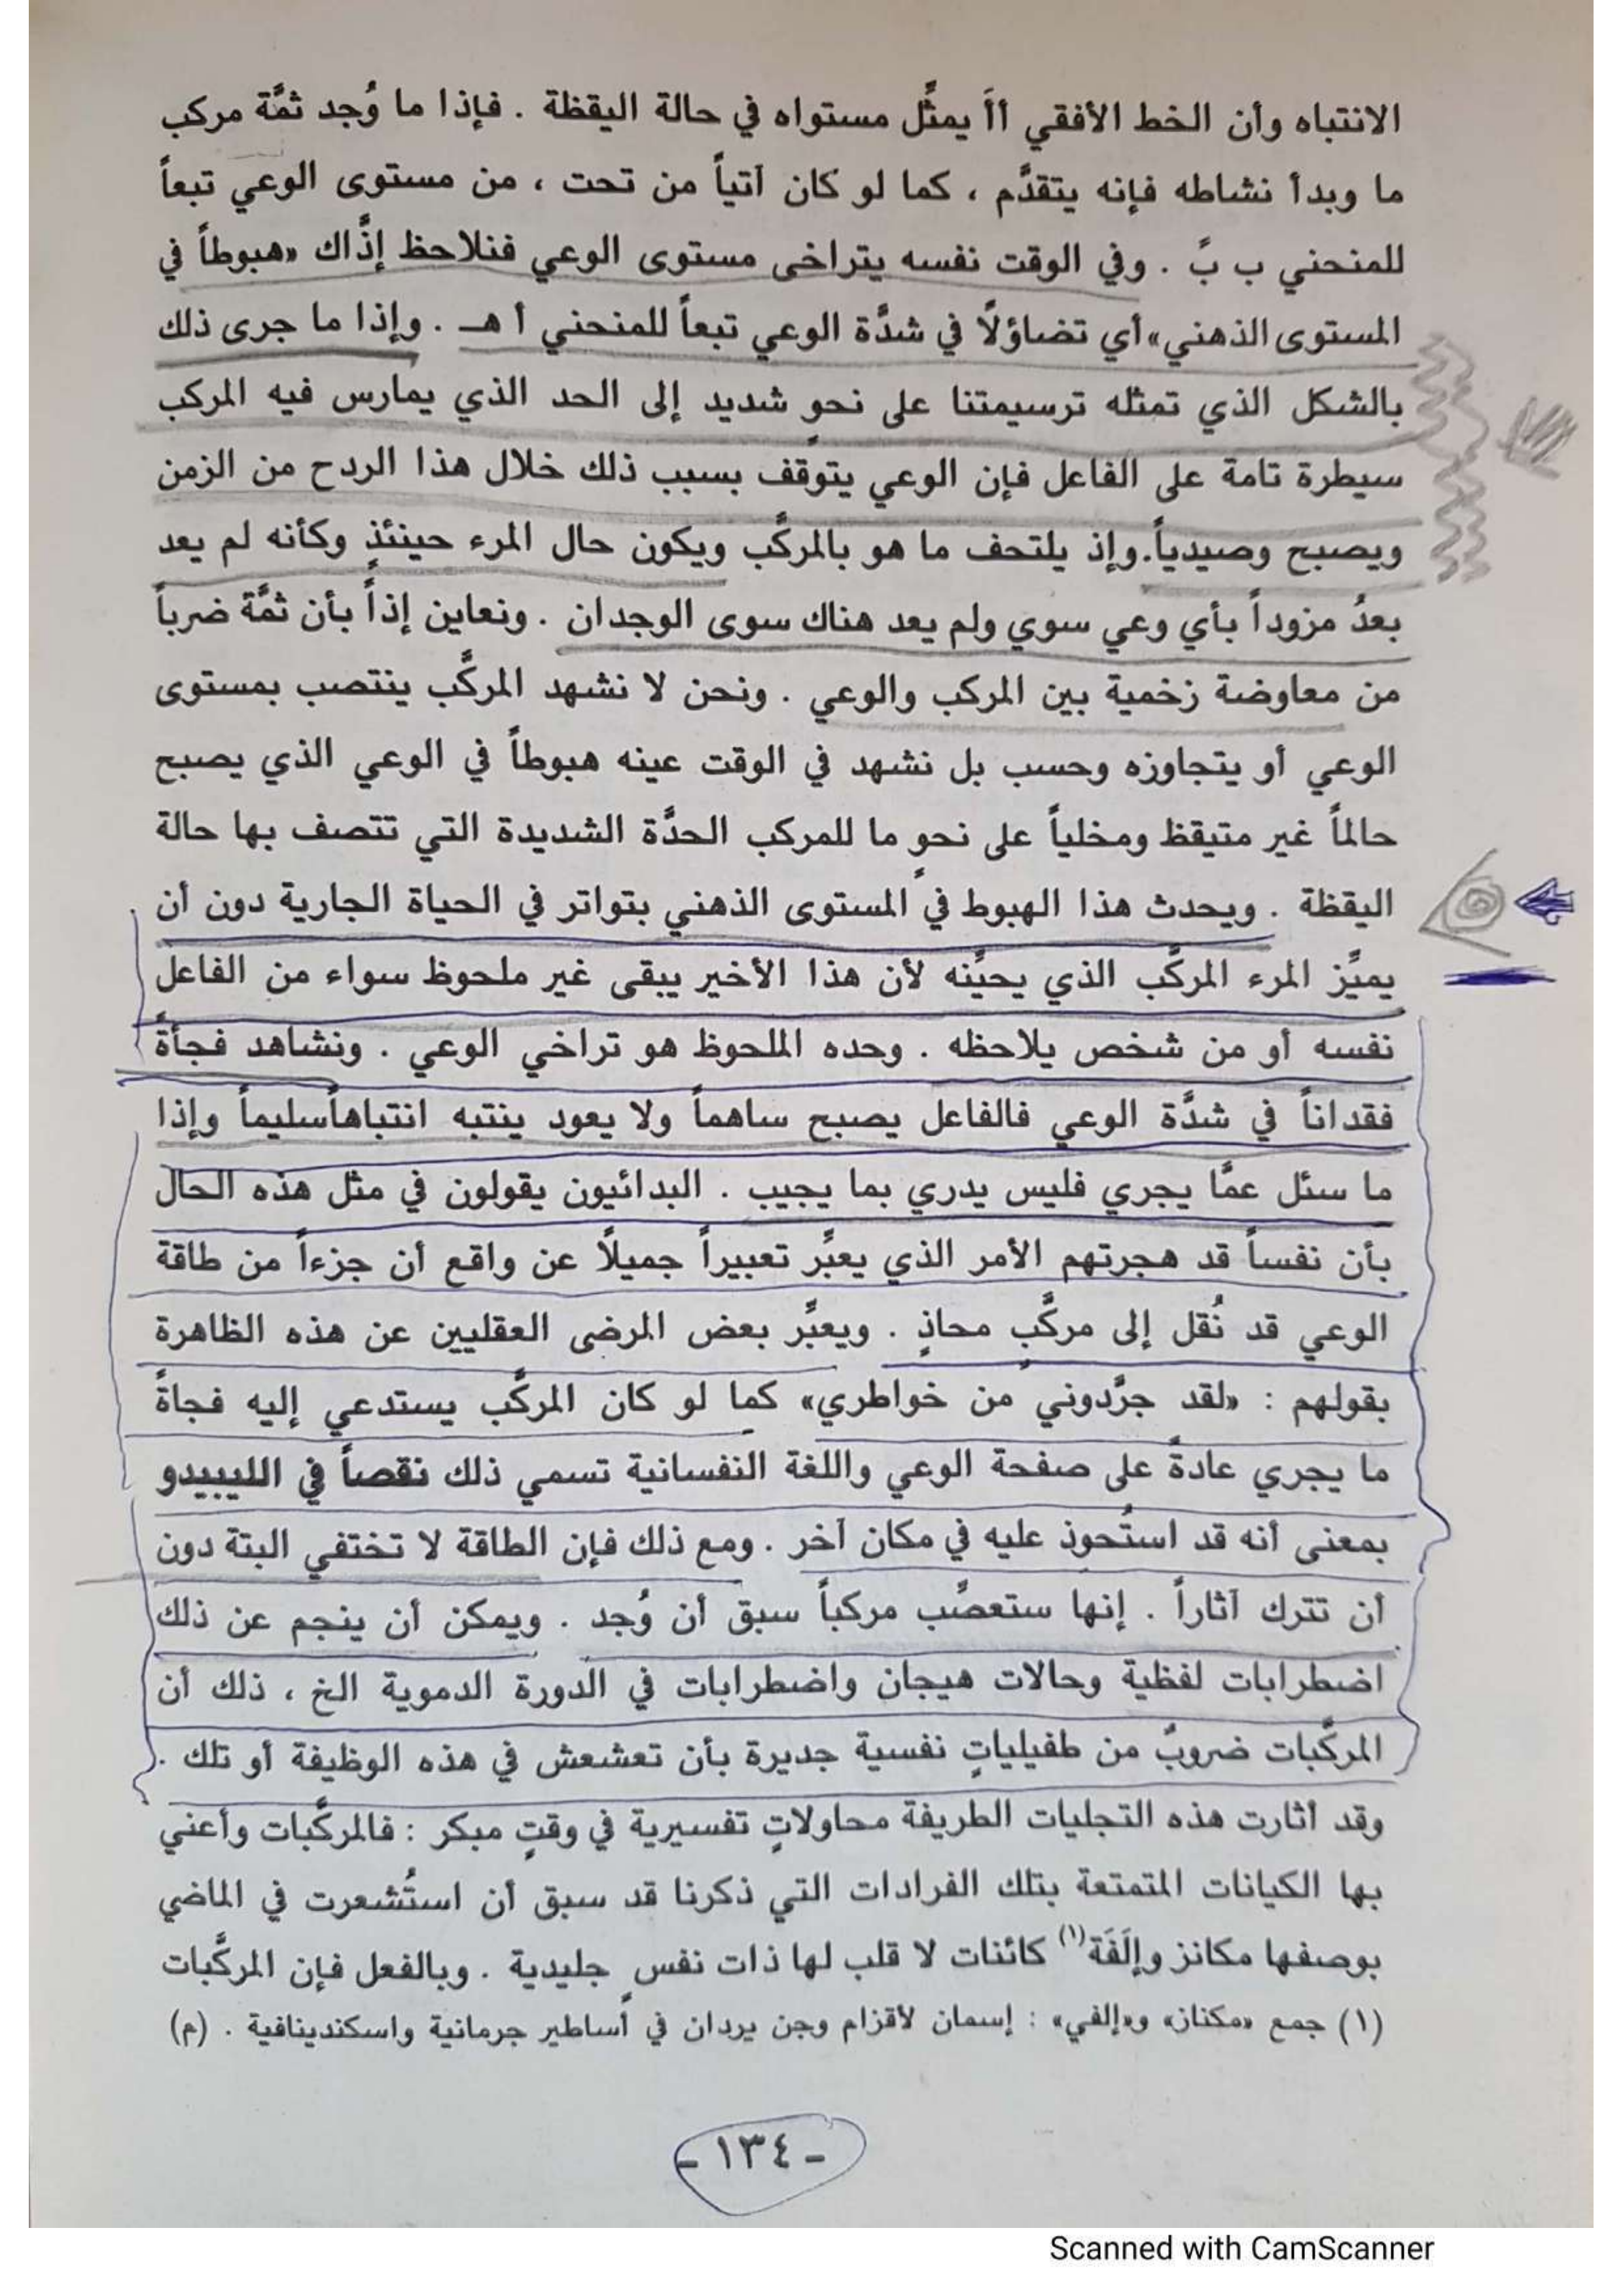 الانتباه وأن الخط الأفقي أأَ يمثِّل مستواه في حالة اليقظة . فإذا ما وُجد ثمَّة مركب
ما وبدأ نشاطه فإنه يتقدَّم ، كما لو كان آتياً من تحت ، من مستوى الوعي تبعاً
للمنحني ب بً . وفي الوقت نفسه يتراخى مستوى الوعي فنلاحظ إذَّاك «هبوطاً في
المستوى الذهني» أي تضاؤلاً في شدَّة الوعي تبعاً للمنحني أ هـ . وإذا ما جرى ذلك
بالشكل الذي تمثله ترسيمتنا على نحوٍ شديد إلى الحد الذي يمارس فيه المركب
سيطرة تامة على الفاعل فإن الوعي يتوقف بسبب ذلك خلال هذا الردح من الزمن
ويصبح وصيدياً. وإذ يلتحف ما هو بالمركَّب ويكون حال المرء حينئذٍ وكأنه لم يعد
بعدُ مزوداً بأي وعي سوي ولم يعد هناك سوى الوجدان . ونعاين إذاً بأن ثمَّة ضرباً
من معاوضة زخمية بين المركب والوعي . ونحن لا نشهد المركَّب ينتصب بمستوى
الوعي أو يتجاوزه وحسب بل نشهد في الوقت عينه هبوطاً في الوعي الذي يصبح
حالماً غير متيقظ ومخلياً على نحوٍ ما للمركب الحدَّة الشديدة التي تتصف بها حالة
اليقظة . ويحدث هذا الهبوط في المستوى الذهني بتواتر في الحياة الجارية دون أن
يميِّز المرء المركَّب الذي يحيِّنه لأن هذا الأخير يبقى غير ملحوظ سواء من الفاعل
نفسه أو من شخص يلاحظه . وحده الملحوظ هو تراخي الوعي . ونشاهد فجأةً
فقداناً في شدَّة الوعي فالفاعل يصبح ساهماً ولا يعود ينتبه انتباهاً سليماً وإذا
ما سئل عمَّا يجري فليس يدري بما يجيب . البدائيون يقولون في مثل هذه الحال
بأن نفساً قد هجرتهم الأمر الذي يعبِّر تعبيراً جميلاً عن واقع أن جزءاً من طاقة
الوعي قد نُقل إلى مركَّبٍ محاذٍ . ويعبِّر بعض المرضى العقليين عن هذه الظاهرة
بقولهم : «لقد جرَّدوني من خواطري» كما لو كان المركَّب يستدعي إليه فجاةً
ما يجري عادةً على صفحة الوعي واللغة النفسانية تسمي ذلك نقصاً في الليبيدو
بمعنى أنه قد استُحوذ عليه في مكان آخر . ومع ذلك فإن الطاقة لا تختفي البتة دون
أن تترك آثاراً . إنها ستعصِّب مركباً سبق أن وُجد . ويمكن أن ينجم عن ذلك
اضطرابات لفظية وحالات هيجان واضطرابات في الدورة الدموية الخ ، ذلك أن
المركَّبات ضروبٌ من طفيلياتٍ نفسية جديرة بأن تعشعش في هذه الوظيفة أو تلك .
وقد أثارت هذه التجليات الطريفة محاولاتٍ تفسيرية في وقتٍ مبكر : فالمركَّبات وأعني
بها الكيانات المتمتعة بتلك الفرادات التي ذكرنا قد سبق أن استُشعرت في الماضي
بوصفها مكانز وإلَفَة(١) كائنات لا قلب لها ذات نفسٍ جليدية . وبالفعل فإن المركَّبات
(١) جمع «مكناز» و«إلفي» : إسمان لأقزام وجن يردان في أساطير جرمانية واسكندينافية . (م)
- ١٣٤ -
Scanned with CamScanner